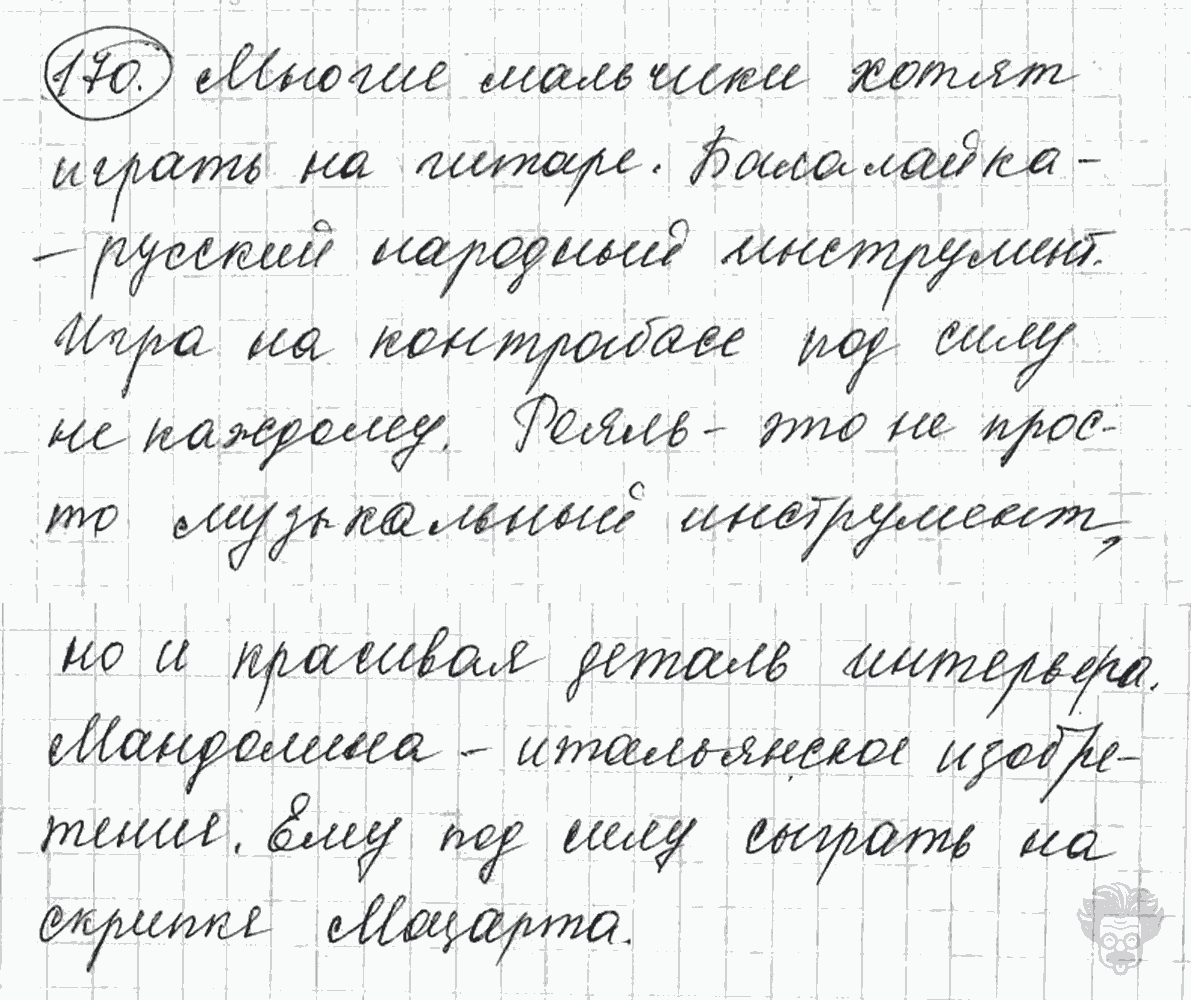 170. Многие мальчики хотят
играть на гитаре. Балалайка -
- русский народный инструмент.
Игра на контрабасе под силу
не каждому. Рояль - это не прос-
то музыкальный инструмент,
но и красивая деталь интерьера.
Мандолина - итальянское изобре-
тение. Ему под силу сыграть на
скрипке Моцарта.